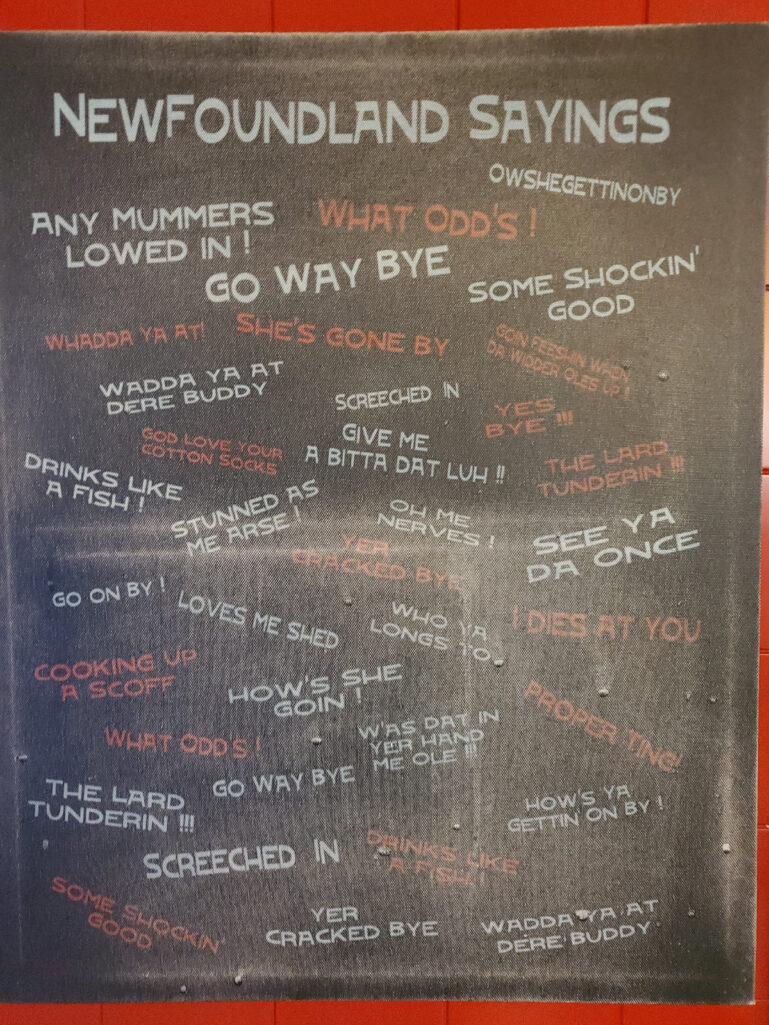 NEWFOUNDLAND SAYINGS
OWSHEGETTINONBY
ANY MUMMERS
LOWED IN !
WHAT ODD'S !
GO WAY BYE
SOME SHOCKIN'
GOOD
WHADDA YA AT!
SHE'S GONE BY
GOIN FEESHIN WADA
DA WIDDER OLES UP !
WADDA YA AT
DERE BUDDY
SCREECHED IN
YES
BYE !!!
GOD LOVE YOUR
COTTON SOCKS
GIVE ME
A BITTA DAT LUH !!
THE LARD
TUNDERIN !!!
DRINKS LIKE
A FISH !
STUNNED AS
ME ARSE !
OH ME
NERVES !
SEE YA
DA ONCE
YER
CRACKED BYE
GO ON BY !
LOVES ME SHED
WHO YA
LONGS TO
I DIES AT YOU
COOKING UP
A SCOFF
HOW'S SHE
GOIN !
PROPER TING!
WHAT ODD'S !
W'AS DAT IN
YER HAND
ME OLE !!!
GO WAY BYE
THE LARD
TUNDERIN !!!
HOW'S YA
GETTIN' ON BY !
SCREECHED IN
DRINKS LIKE
A FISH !
SOME SHOCKIN'
GOOD
YER
CRACKED BYE
WADDA YA AT
DERE BUDDY